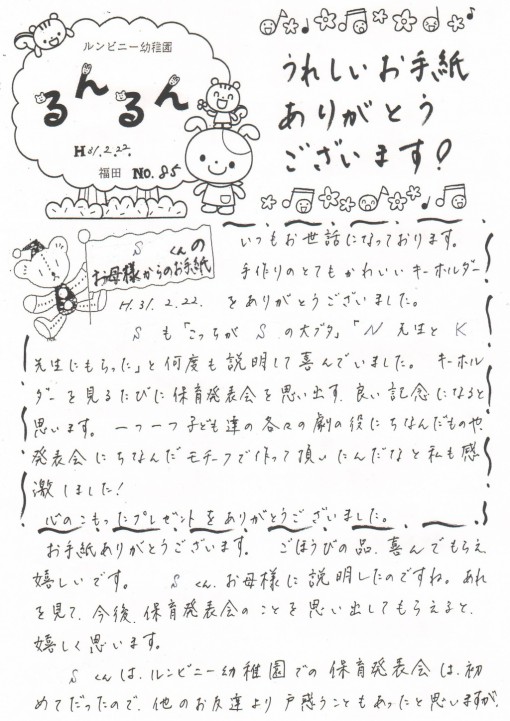 ルンビニー幼稚園
るんるん
H31.2.22.
福田 No.85
うれしいお手紙
ありがとう
ございます!
S くんの
お母様からのお手紙
H.31.2.22.
いつもお世話になっております。
手作りのとてもかわいいキーホルダー
をありがとうございました。
S も「こっちが S の大ブタ」「N 先生と K
先生にもらった」と何度も説明して喜んでいました。 キーホル
ダーを見るたびに保育発表会を思い出す、良い記念になると
思います。一つ一つ子ども達の各々の劇の役にちなんだものや、
発表会にちなんだモチーフで作って頂いたんだなと私も感
激しました!
心のこもったプレゼントをありがとうございました。
お手紙ありがとうございます。 ごほうびの品、喜んでもらえ
嬉しいです。 S くん、お母様に説明したのですね。あれ
を見て、今後、保育発表会のことを思い出してもらえると、
嬉しく思います。
S くんは、ルンビニー幼稚園での保育発表会は、初
めてだったので、他のお友達より戸惑うこともあったと思いますが、